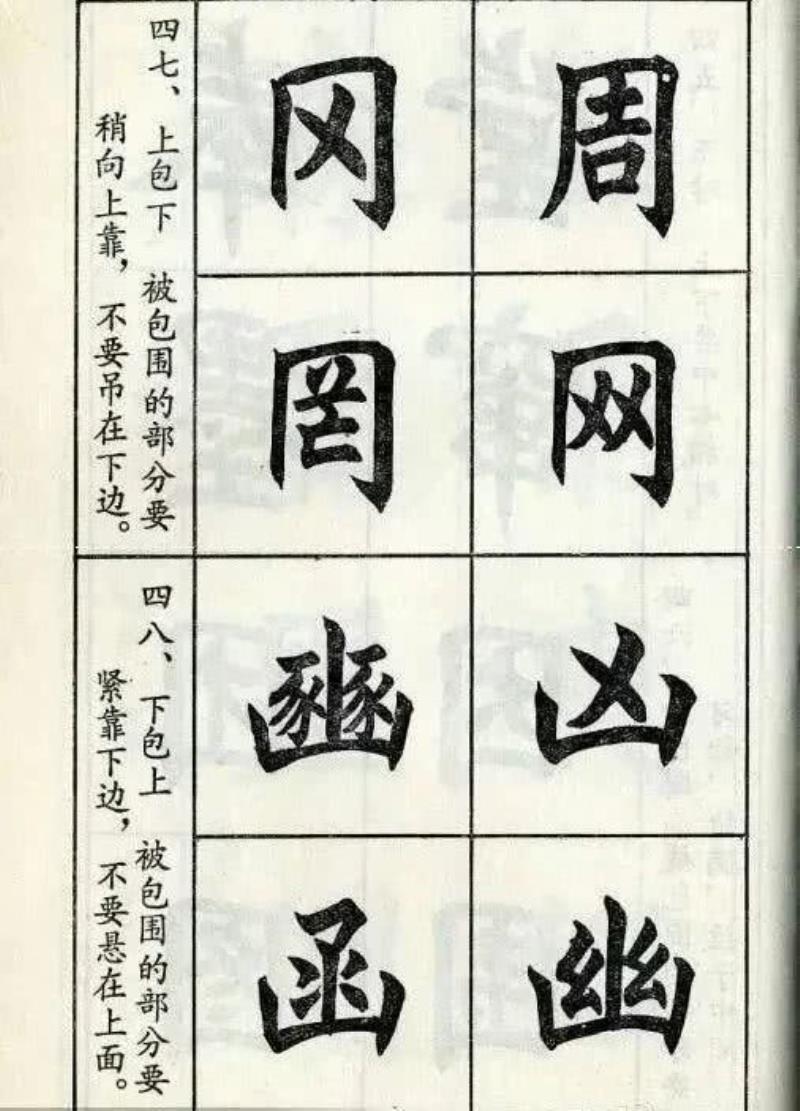 周
网
冈
罔
四七、上包下 被包围的部分要
稍向上靠，不要吊在下边。
凶
幽
豳
函
四八、下包上 被包围的部分要
紧靠下边，不要悬在上面。